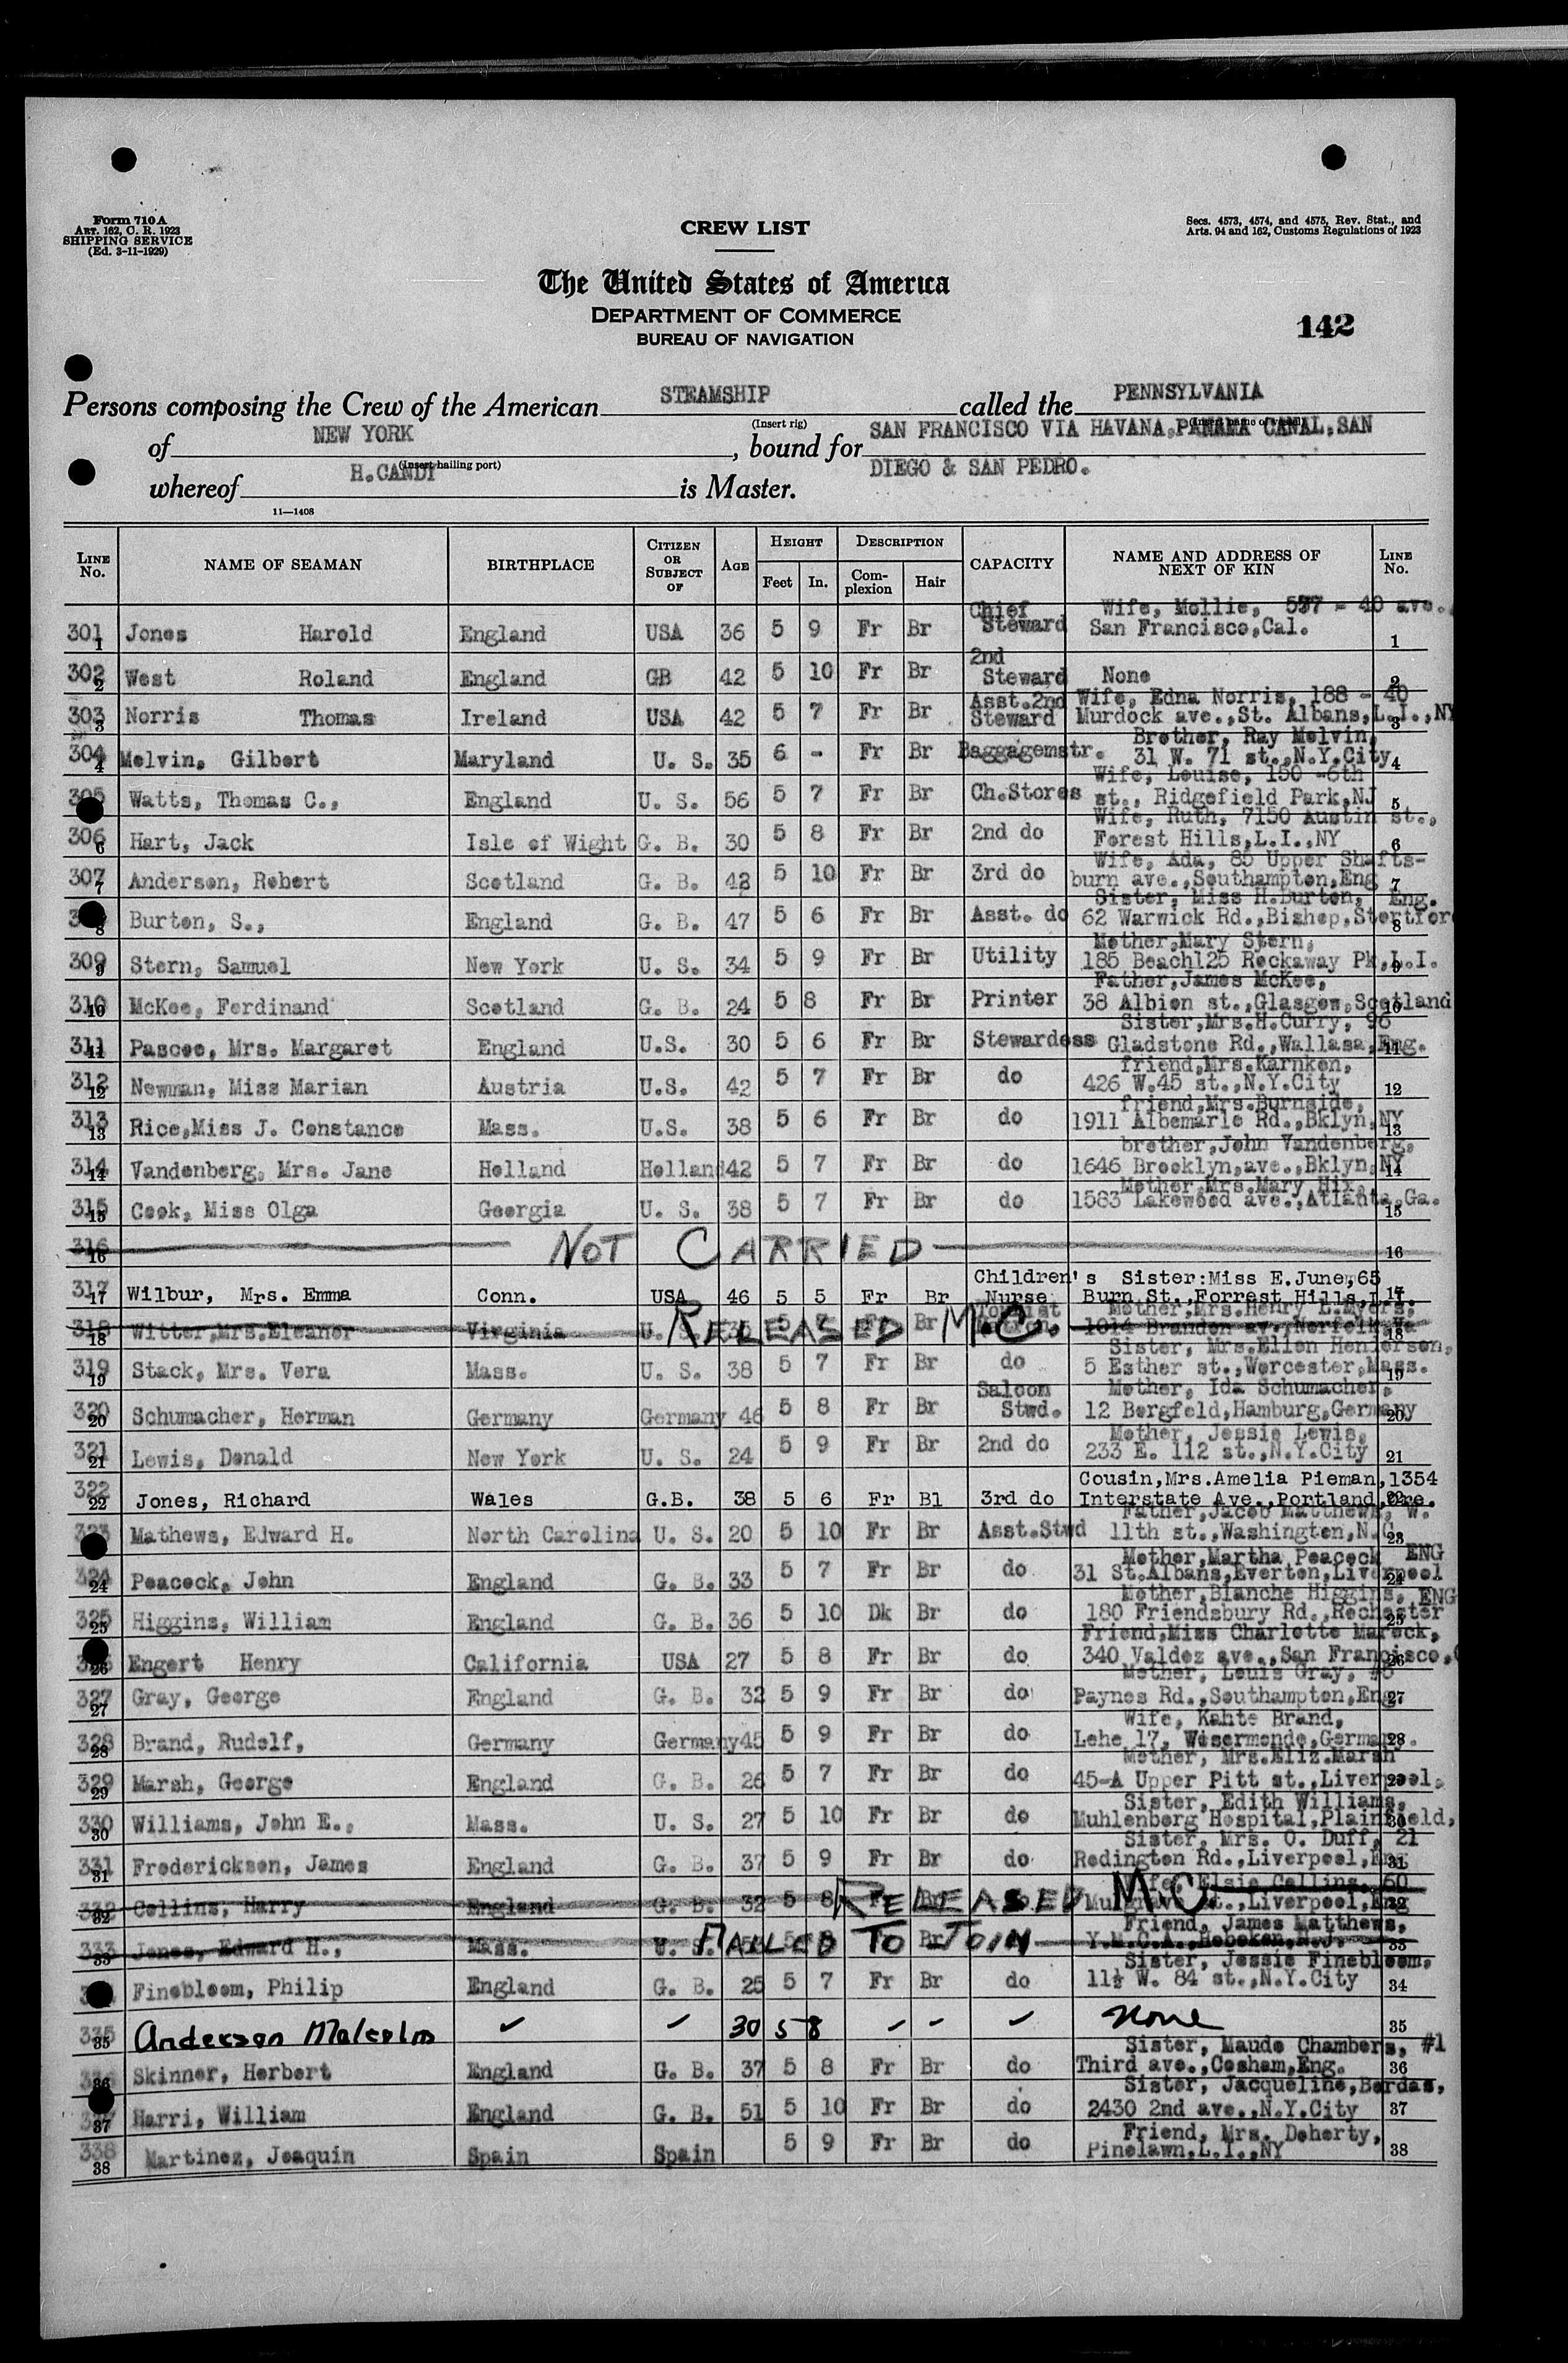 Form 710 A
ART. 162, C. R. 1923
SHIPPING SERVICE
(Ed. 3-11-1929)
CREW LIST
Secs. 4573, 4574, and 4575, Rev. Stat., and
Arts. 94 and 162, Customs Regulations of 1923
The United States of America
DEPARTMENT OF COMMERCE
BUREAU OF NAVIGATION
142
Persons composing the Crew of the American STEAMSHIP called the PENNSYLVANIA
(Insert rig) (Insert name of vessel)
of NEW YORK, bound for SAN FRANCISCO VIA HAVANA, PANAMA CANAL, SAN
(Insert hailing port)
whereof H.CANDY is Master. DIEGO & SAN PEDRO.
11—1408
LINE No. NAME OF SEAMAN BIRTHPLACE CITIZEN OR SUBJECT OF AGE HEIGHT Feet In. DESCRIPTION Complexion Hair CAPACITY NAME AND ADDRESS OF NEXT OF KIN LINE No.
301 1 Jones Harold England USA 36 5 9 Fr Br Chief Steward Wife, Mollie, 577 - 40 ave., San Francisco,Cal. 1
302 2 West Roland England GB 42 5 10 Fr Br 2nd Steward None 2
303 3 Norris Thomas Ireland USA 42 5 7 Fr Br Asst.2nd Steward Wife, Edna Norris, 188 - 40 Murdock ave.,St. Albans,L.I.,NY 3
304 4 Melvin, Gilbert Maryland U. S. 35 6 - Fr Br Baggagemstr. Brother, Ray Melvin, 31 W. 71 st.,N.Y.City 4
305 Watts, Thomas C., England U. S. 56 5 7 Fr Br Ch.Stores Wife, Louise, 150 -6th st., Ridgefield Park,NJ 5
306 6 Hart, Jack Isle of Wight G. B. 30 5 8 Fr Br 2nd do Wife, Ruth, 7150 Austin st., Forest Hills,L.I.,NY 6
307 7 Anderson, Robert Scotland G. B. 42 5 10 Fr Br 3rd do Wife, Ada, 85 Upper Shafts- burn ave.,Southampton,Eng 7
8 Burton, S., England G. B. 47 5 6 Fr Br Asst. do Sister, Miss H.Burton, Eng. 62 Warwick Rd.,Bishop,Stortford 8
309 9 Stern, Samuel New York U. S. 34 5 9 Fr Br Utility Mother,Mary Stern, 185 Beach125 Rockaway Pk,L.I. 9
310 10 McKee, Ferdinand Scotland G. B. 24 5 8 Fr Br Printer Father,James McKee, 38 Albion st.,Glasgow,Scotland 10
311 11 Pascoe, Mrs. Margaret England U.S. 30 5 6 Fr Br Stewardess Sister,Mrs.H.Curry, 96 Gladstone Rd.,Wallasa,Eng. 11
312 12 Newman, Miss Marian Austria U.S. 42 5 7 Fr Br do friend,Mrs.Karnken, 426 W.45 st.,N.Y.City 12
313 13 Rice,Miss J. Constance Mass. U.S. 38 5 6 Fr Br do friend,Mrs.Burnside, 1911 Albemarle Rd.,Bklyn,NY 13
314 14 Vandenberg, Mrs. Jane Holland Holland 42 5 7 Fr Br do brother,John Vandenberg, 1646 Brooklyn,ave.,Bklyn,NY 14
315 15 Cook, Miss Olga Georgia U. S. 38 5 7 Fr Br do Mother,Mrs.Mary Hix, 1583 Lakewood ave.,Atlanta,Ga. 15
316 16 NOT CARRIED 16
317 17 Wilbur, Mrs. Emma Conn. USA 46 5 5 Fr Br Children's Nurse Sister:Miss E.June,65 Burn St.,Forrest Hills,L.I. 17
318 18 Witter,Mrs.Eleanor Virginia U. RELEASED M.C. Br Mother,Mrs.Henry L.Myers, 1014 Brandon av.,Norfolk,Va 18
319 19 Stack, Mrs. Vera Mass. U. S. 38 5 7 Fr Br do Sister, Mrs.Ellen Henderson, 5 Esther st.,Worcester,Mass. 19
320 20 Schumacher, Herman Germany Germany 46 5 8 Fr Br Saloon Stwd. Mother, Ida Schumacher, 12 Bergfeld,Hamburg,Germany 20
321 21 Lewis, Donald New York U. S. 24 5 9 Fr Br 2nd do Mother, Jessie Lewis, 233 E. 112 st.,N.Y.City 21
322 22 Jones, Richard Wales G.B. 38 5 6 Fr Bl 3rd do Cousin,Mrs.Amelia Pieman,1354 Interstate Ave.,Portland,Ore. 22
323 Mathews, Edward H. North Carolina U. S. 20 5 10 Fr Br Asst.Stwd Father,Jacob Matthews, W. 11th st.,Washington,N.C. 23
324 24 Peacock, John England G. B. 33 5 7 Fr Br do Mother,Martha Peacock ENG 31 St.Albans,Everton,Liverpool 24
325 25 Higgins, William England G. B. 36 5 10 Dk Br do Mother,Blanche Higgins, ENG 180 Friendsbury Rd.,Rochester 25
26 Engert Henry California USA 27 5 8 Fr Br do Friend,Miss Charlotte Mareck, 340 Valdez ave.,San Francisco, 26
327 27 Gray, George England G. B. 32 5 9 Fr Br do Mother, Louis Gray, #8 Paynes Rd.,Southampton,Eng 27
328 28 Brand, Rudolf, Germany Germany 45 5 9 Fr Br do Wife, Kahte Brand, Lehe 17, Wesermonde,Germany. 28
329 29 Marsh, George England G. B. 26 5 7 Fr Br do Mother, Mrs.Eliz.Marsh 45-A Upper Pitt st.,Liverpool, 29
330 30 Williams, John E., Mass. U. S. 27 5 10 Fr Br do Sister, Edith Williams, Muhlenberg Hospital,Plainfield, 30
331 31 Frederickson, James England G. B. 37 5 9 Fr Br do Sister, Mrs. O. Duff, 21 Redington Rd.,Liverpool,Eng 31
332 32 Collins, Harry England G. B. 32 5 8 RELEASED M.C. Wife, Elsie Collins, 60 Liverpool,Eng 32
333 33 Jones, Edward H., Mass. U. S. FAILED TO JOIN Br Friend, James Matthews, Y.M.C.A.,Hoboken,N.J. 33
Finebloom, Philip England G. B. 25 5 7 Fr Br do Sister, Jessie Finebloom, 11½ W. 84 st.,N.Y.City 34
335 35 Anderson Malcolm ✓ ✓ 30 5 8 - - ✓ None 35
36 Skinner, Herbert England G. B. 37 5 8 Fr Br do Sister, Maude Chambers, #1 Third ave.,Cosham,Eng. 36
37 Harri, William England G. B. 51 5 10 Fr Br do Sister, Jacqueline,Bordas, 2430 2nd ave.,N.Y.City 37
338 38 Martinez, Joaquin Spain Spain 5 9 Fr Br do Friend, Mrs. Doherty, Pinelawn,L.I.,NY 38